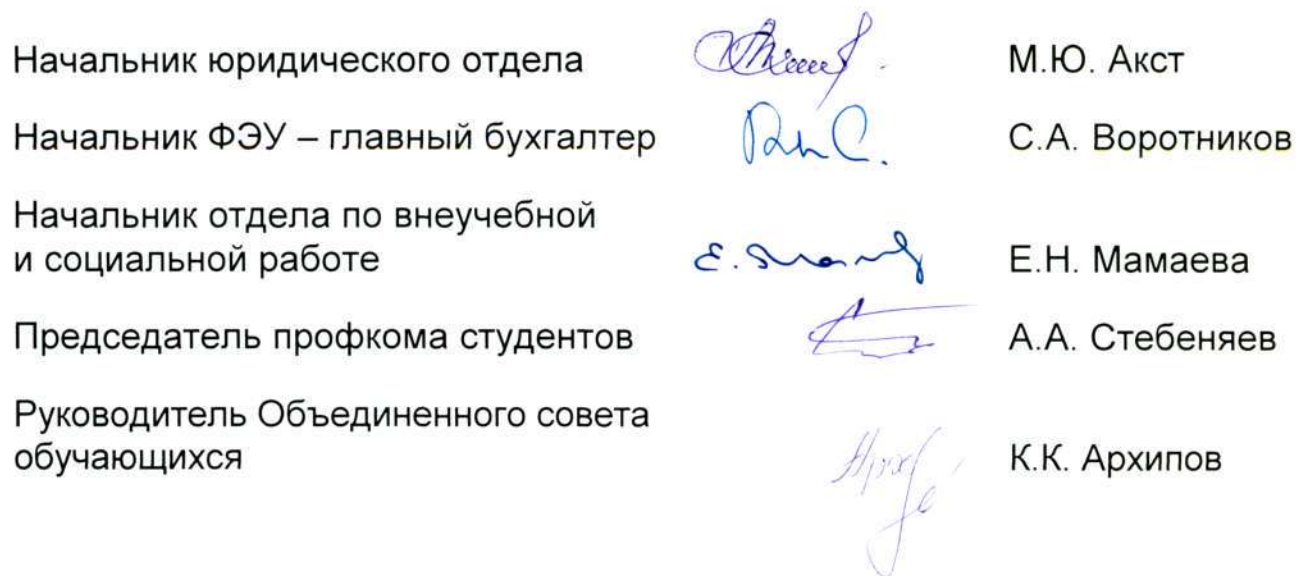 Начальник юридического отдела М.Ю. Акст
Начальник ФЭУ – главный бухгалтер С.А. Воротников
Начальник отдела по внеучебной
и социальной работе Е.Н. Мамаева
Председатель профкома студентов А.А. Стебеняев
Руководитель Объединенного совета
обучающихся К.К. Архипов